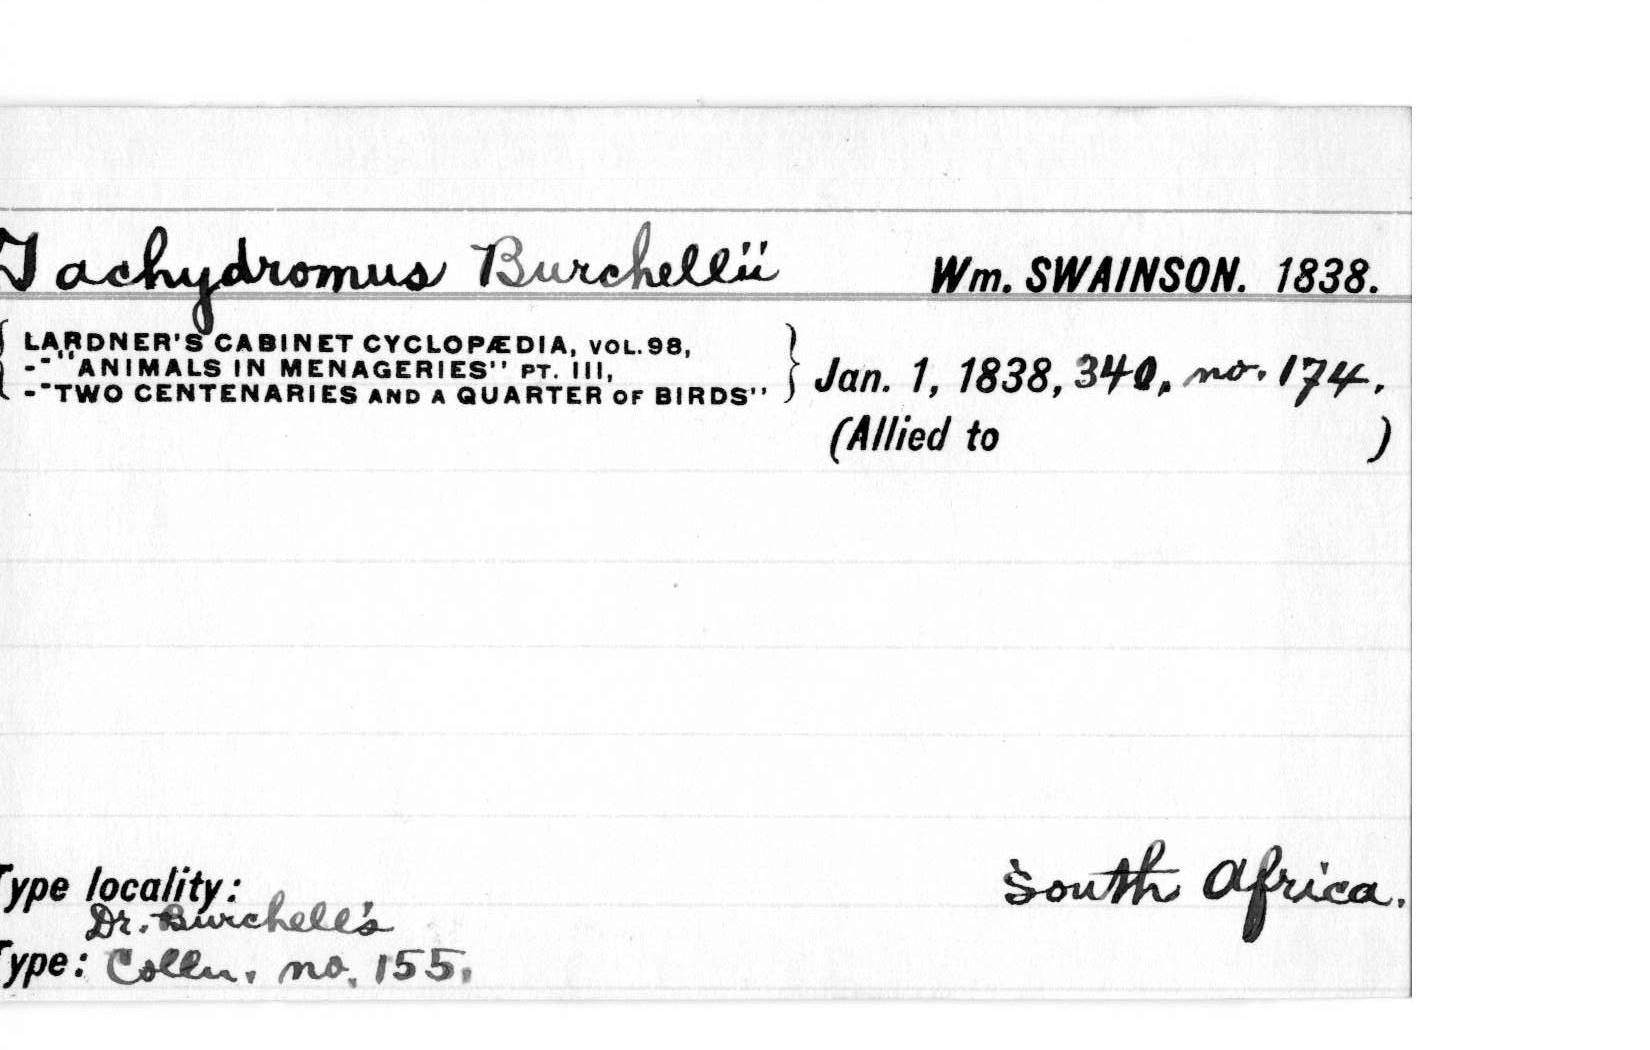 Tachydromus Burchellii Wm. SWAINSON. 1838.
{ LARDNER'S CABINET CYCLOPÆDIA, VOL. 98,
-"ANIMALS IN MENAGERIES" PT. III, } Jan. 1, 1838, 340, no. 174.
-"TWO CENTENARIES AND A QUARTER OF BIRDS"
(Allied to )
Type locality: South Africa.
Dr. Burchell's
Type: Colln. no. 155.